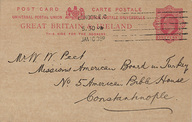 POST CARD CARTE POSTALE
GREAT BRITAIN & IRELAND
Mr W. W. Peet
Missions American Board in Turkey
No 5 American Bible House
Constantinople